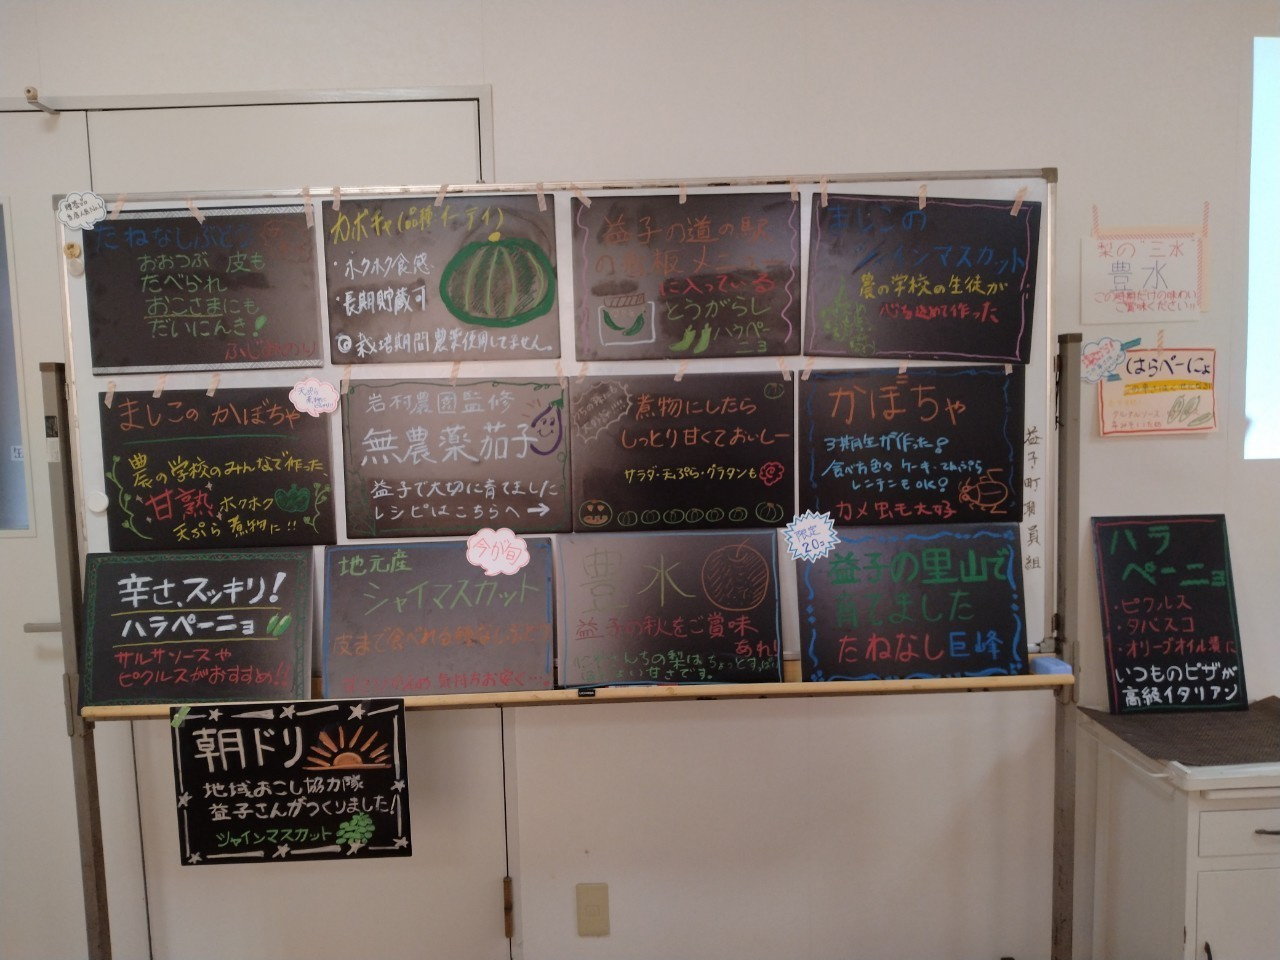 たねなしぶどう
おおつぶ 皮も
たべられ
おこさまにも
だいにんき!
ふじみのり
カボチャ(品種イーティ)
・ホクホク食感
・長期貯蔵可
◎栽培期間農薬使用してません。
益子の道の駅
の看板メニュー
に入っている
とうがらし
ハラペー
ニョ
ましこの
シャインマスカット
農の学校の生徒が
心を込めて作った
ましこのかぼちゃ
農の学校のみんなで作った
甘熟 ホクホク
天ぷら 煮物に!!
岩村農園監修
無農薬茄子
益子で大切に育てました
レシピはこちらへ→
煮物にしたら
しっとり甘くておいしー
サラダ・天ぷら・グラタンも
かぼちゃ
3期生が作った!
食べ方色々 ケーキ・てんぷら
レンチンもOK!
カメ虫も大好
益子町職員組
辛さ、スッキリ!
ハラペーニョ
サルサソースや
ピクルスがおすすめ!!
今が旬
地元産
シャイマスカット
皮まで食べれる種なしぶどう
豊水
益子の秋をご賞味
あれ!
限定
20コ
益子の里山で
育てました
たねなし巨峰
朝ドリ
地域おこし協力隊
益子さんがつくりました!
シャインマスカット
梨の"三水
豊水
この時期だけの味わい
ご賞味ください!!
はらぺーにょ
ハラ
ペーニョ
・ピクルス
・タバスコ
・オリーブオイル漬に
いつものピザが
高級イタリアン